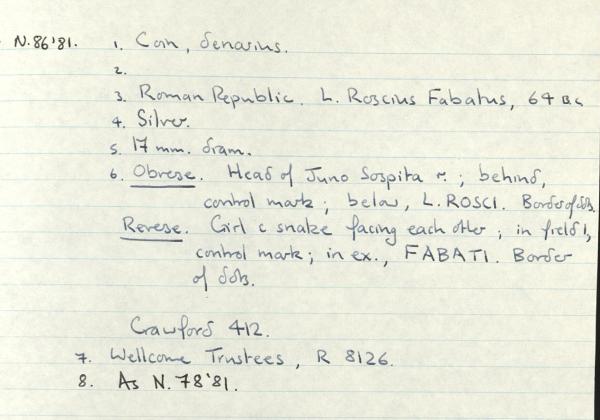 N.86'81. 1. Coin, denarius.
2.
3. Roman Republic. L. Roscius Fabatus, 64 BC
4. Silver.
5. 17 mm. diam.
6. Obverse. Head of Juno Sospita r.; behind,
control mark; below, L. ROSCI. Border of dots.
Reverse. Girl c snake facing each other; in field l,
control mark; in ex., FABATI. Border
of dots.
Crawford 412.
7. Wellcome Trustees, R 8126.
8. As N.78'81.